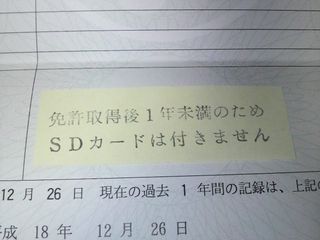 免許取得後1年未満のため
SDカードは付きません
12 月 26 日 現在の過去 1 年間の記録は、上記の
平成 18 年 12 月 26 日